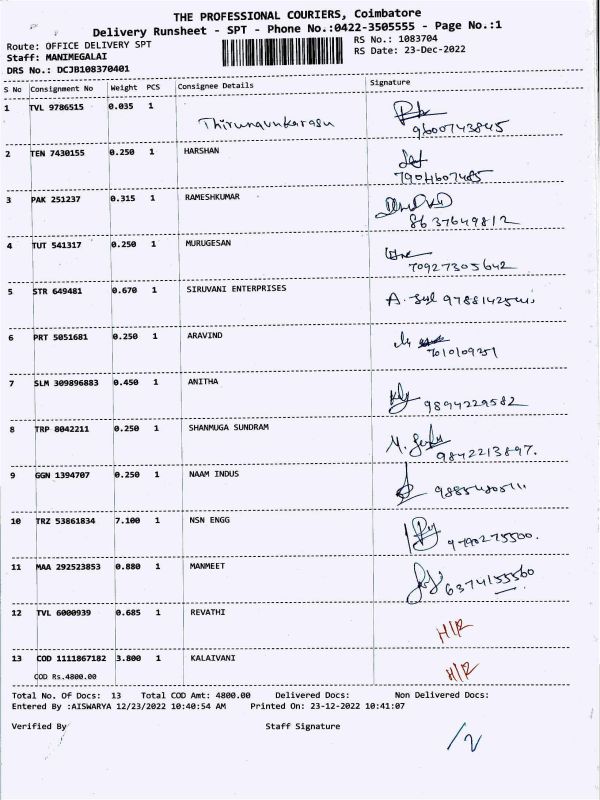 THE PROFESSIONAL COURIERS, Coimbatore
Delivery Runsheet - SPT - Phone No.:0422-3505555 - Page No.:1
Route: OFFICE DELIVERY SPT RS No.: 1083704
Staff: MANIMEGALAI RS Date: 23-Dec-2022
DRS No.: DCJB108370401
S No Consignment No Weight PCS Consignee Details Signature
1 TVL 9786515 0.035 1 Thirunavukarasu
9600743845
2 TEN 7430155 0.250 1 HARSHAN
7904607485
3 PAK 251237 0.315 1 RAMESHKUMAR
8637649812
4 TUT 541317 0.250 1 MURUGESAN
70927305642
5 STR 649481 0.670 1 SIRUVANI ENTERPRISES
6 PRT 5051681 0.250 1 ARAVIND
7010109351
7 SLM 309896883 0.450 1 ANITHA
9894229582
8 TRP 8042211 0.250 1 SHANMUGA SUNDRAM
9842213897.
9 GGN 1394707 0.250 1 NAAM INDUS
10 TRZ 53861834 7.100 1 NSN ENGG
9790275500.
11 MAA 292523853 0.880 1 MANMEET
6374155560
12 TVL 6000939 0.685 1 REVATHI
H/R
13 COD 1111867182 3.800 1 KALAIVANI
H/R
COD Rs.4800.00
Total No. Of Docs: 13 Total COD Amt: 4800.00 Delivered Docs: Non Delivered Docs:
Entered By :AISWARYA 12/23/2022 10:40:54 AM Printed On: 23-12-2022 10:41:07
Verified By Staff Signature